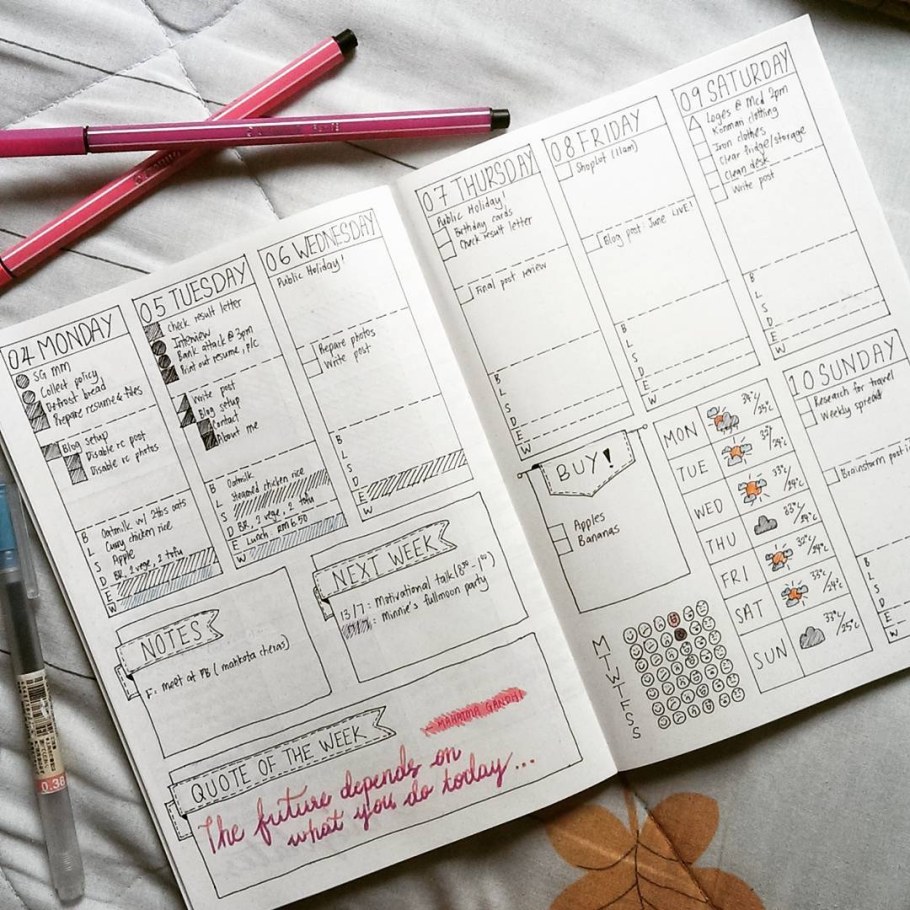 04 MONDAY
SG MM
Collect policy
Defrost bread
Prepare resume & files
Blog setup
Disable rc post
Disable rc photos
B Oatmilk w/ 2tbs oats
L Curry chicken rice
S Apple
D BR, 2 vege, 2 tofu
E
W
05 TUESDAY
Check result letter
Interview
Bank attack @ 3pm
Print out resume, P/C
Write post
Blog setup
Contact
About me
B Oatmilk
L Steamed chicken rice
S
D BR, 2 vege, 2 tofu
E Lunch: RM 6.50
W
06 WEDNESDAY
Public Holiday!
Prepare photos
Write post
B
L
S
D
E
W
NOTES
F: meet at PB (mahkota cheras)
NEXT WEEK
13/7: Motivational talk
: Minnie's fullmoon party
QUOTE OF THE WEEK
- MAHATMA GANDHI
The future depends on
what you do today...
0.38
07 THURSDAY
Public Holiday
Birthday cards
Check result letter
Final post review
B
L
S
D
E
W
08 FRIDAY
Shoplot (11am)
Blog post June LIVE!
B
L
S
D
E
W
09 SATURDAY
Loges @ Mcd 2pm
Konman clothing
Iron clothes
Clear fridge/storage
Clean desk
Write post
B
L
S
D
E
W
BUY!
Apples
Bananas
MON 34°/25°c
TUE 33°/24°c
WED 33°/24°c
THU 33°/24°c
FRI 33°/24°c
SAT 33°/24°c
SUN 33°/25°c
M
T
W
T
F
S
S
10 SUNDAY
Research for travel
Weekly spread
Brainstorm post
B
L
S
D
E